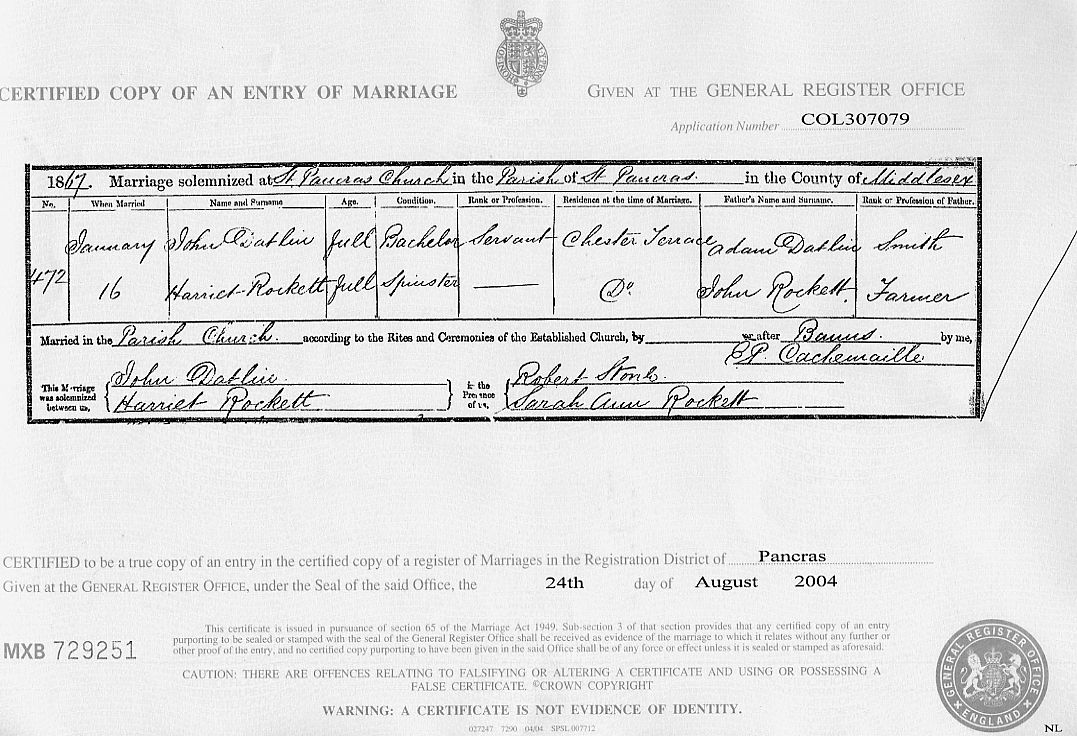 CERTIFIED COPY OF AN ENTRY OF MARRIAGE
GIVEN AT THE GENERAL REGISTER OFFICE
Application Number COL307079
1867. Marriage solemnized at St. Pancras Church in the Parish of St. Pancras. in the County of Middlesex
No. When Married Name and Surname Age. Condition. Rank or Profession. Residence at the time of Marriage. Father's Name and Surname. Rank or Profession of Father.
January John Datlin full Bachelor Servant Chester Terrace Adam Datlin Smith
472
16 Harriet Rockett full Spinster — Do. John Rockett. Farmer
Married in the Parish Church. according to the Rites and Ceremonies of the Established Church, by or after Banns. by me,
Cachemaille
This Marriage was solemnized between us, John Datlin. in the Presence of us, Robert Stone.
Harriet Rockett Sarah Ann Rockett
CERTIFIED to be a true copy of an entry in the certified copy of a register of Marriages in the Registration District of Pancras
Given at the GENERAL REGISTER OFFICE, under the Seal of the said Office, the 24th day of August 2004
This certificate is issued in pursuance of section 65 of the Marriage Act 1949. Sub-section 3 of that section provides that any certified copy of an entry
purporting to be sealed or stamped with the seal of the General Register Office shall be received as evidence of the marriage to which it relates without any further or
other proof of the entry, and no certified copy purporting to have been given in the said Office shall be of any force or effect unless it is sealed or stamped as aforesaid.
MXB 729251
CAUTION: THERE ARE OFFENCES RELATING TO FALSIFYING OR ALTERING A CERTIFICATE AND USING OR POSSESSING A
FALSE CERTIFICATE. ©CROWN COPYRIGHT
WARNING: A CERTIFICATE IS NOT EVIDENCE OF IDENTITY.
027247 7290 04/04 SPSL 007712
GENERAL REGISTER OFFICE
ENGLAND
NL